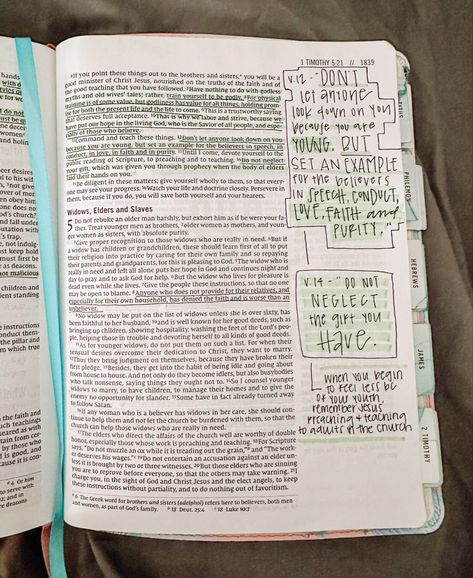 1 TIMOTHY 5:21 // 1839
6If you point these things out to the brothers and sisters,a you will be a
good minister of Christ Jesus, nourished on the truths of the faith and of
the good teaching that you have followed. 7Have nothing to do with godless
myths and old wives' tales; rather, train yourself to be godly. 8For physical
training is of some value, but godliness has value for all things, holding prom-
ise for both the present life and the life to come. 9This is a trustworthy saying
that deserves full acceptance. 10That is why we labor and strive, because we
have put our hope in the living God, who is the Savior of all people, and espe-
cially of those who believe.
11Command and teach these things. 12Don't let anyone look down on you
because you are young, but set an example for the believers in speech, in
conduct, in love, in faith and in purity. 13Until I come, devote yourself to the
public reading of Scripture, to preaching and to teaching. 14Do not neglect
your gift, which was given you through prophecy when the body of elders
laid their hands on you.
15Be diligent in these matters; give yourself wholly to them, so that every-
one may see your progress. 16Watch your life and doctrine closely. Persevere in
them, because if you do, you will save both yourself and your hearers.
Widows, Elders and Slaves
5 Do not rebuke an older man harshly, but exhort him as if he were your fa-
ther. Treat younger men as brothers, 2older women as mothers, and young-
er women as sisters, with absolute purity.
3Give proper recognition to those widows who are really in need. 4But if
a widow has children or grandchildren, these should learn first of all to put
their religion into practice by caring for their own family and so repaying
their parents and grandparents, for this is pleasing to God. 5The widow who is
really in need and left all alone puts her hope in God and continues night and
day to pray and to ask God for help. 6But the widow who lives for pleasure is
dead even while she lives. 7Give the people these instructions, so that no one
may be open to blame. 8Anyone who does not provide for their relatives, and
especially for their own household, has denied the faith and is worse than an
unbeliever.
9No widow may be put on the list of widows unless she is over sixty, has
been faithful to her husband, 10and is well known for her good deeds, such as
bringing up children, showing hospitality, washing the feet of the Lord's peo-
ple, helping those in trouble and devoting herself to all kinds of good deeds.
11As for younger widows, do not put them on such a list. For when their
sensual desires overcome their dedication to Christ, they want to marry.
12Thus they bring judgment on themselves, because they have broken their
first pledge. 13Besides, they get into the habit of being idle and going about
from house to house. And not only do they become idlers, but also busybodies
who talk nonsense, saying things they ought not to. 14So I counsel younger
widows to marry, to have children, to manage their homes and to give the
enemy no opportunity for slander. 15Some have in fact already turned away
to follow Satan.
16If any woman who is a believer has widows in her care, she should con-
tinue to help them and not let the church be burdened with them, so that the
church can help those widows who are really in need.
17The elders who direct the affairs of the church well are worthy of double
honor, especially those whose work is preaching and teaching. 18For Scripture
says, "Do not muzzle an ox while it is treading out the grain,"b and "The work-
er deserves his wages."c 19Do not entertain an accusation against an elder un-
less it is brought by two or three witnesses. 20But those elders who are sinning
you are to reprove before everyone, so that the others may take warning. 21I
charge you, in the sight of God and Christ Jesus and the elect angels, to keep
these instructions without partiality, and to do nothing out of favoritism.
a 6 The Greek word for brothers and sisters (adelphoi) refers here to believers, both men
and women, as part of God's family. b 18 Deut. 25:4 c 18 Luke 10:7
V.12 -- "DON'T
let anyone
look down on you
because you are
YOUNG, BUT
SET AN EXAMPLE
FOR the believers
in SPEECH, CONDUCT,
LOVE, FAITH and
PURITY,"
V.14 - "DO NOT
NEGLECT
the gift YOU
HAVE.
WHEN YOU BEGIN
TO FEEL LESS BC
OF YOUR YOUTH,
REMEMBER JESUS
PREACHING & TEACHING
TO ADULTS OF THE CHURCH
PHILEMON
HEBREWS
JAMES
2 TIMOTHY